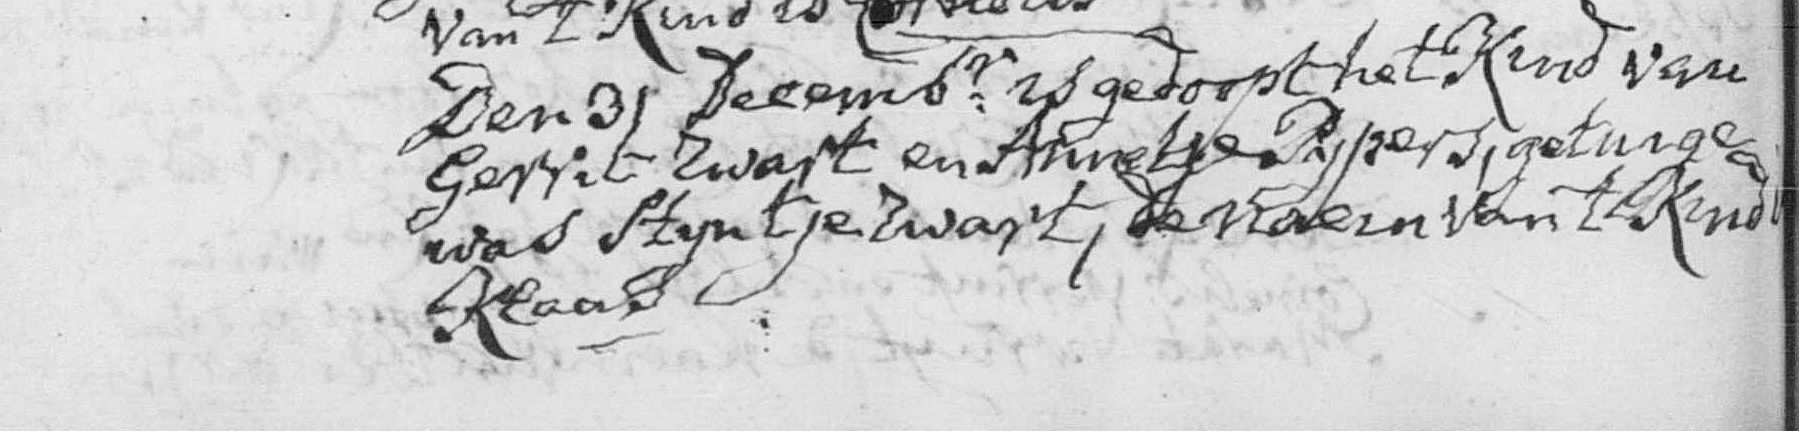 van 't Kind is
Den 31 Decemb.r is gedoopt het Kind van
Gerrit Zwart en Annetje Pypers, getuige
was Styntje Zwart, de naem van 't Kind
Klaas